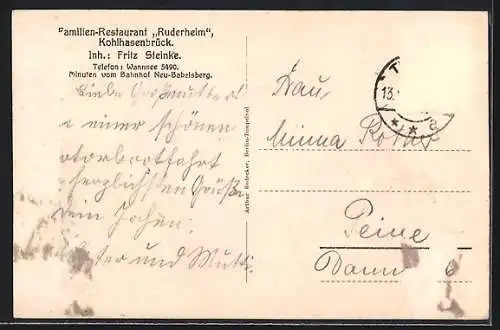 Familien-Restaurant „Ruderheim",
Kohlhasenbrück.
Inh.: Fritz Steinke.
Telefon: Wannsee 5490.
Minuten vom Bahnhof Neu-Babelsberg.
Liebe Großmutter!
einer schönen
otorbootfahrt
herzlichsten Grüße
Jochen.
und Mutti.
Arthur Redecker, Berlin-Tempelhof
13.
Frau
Minna
Peine
Damm 6